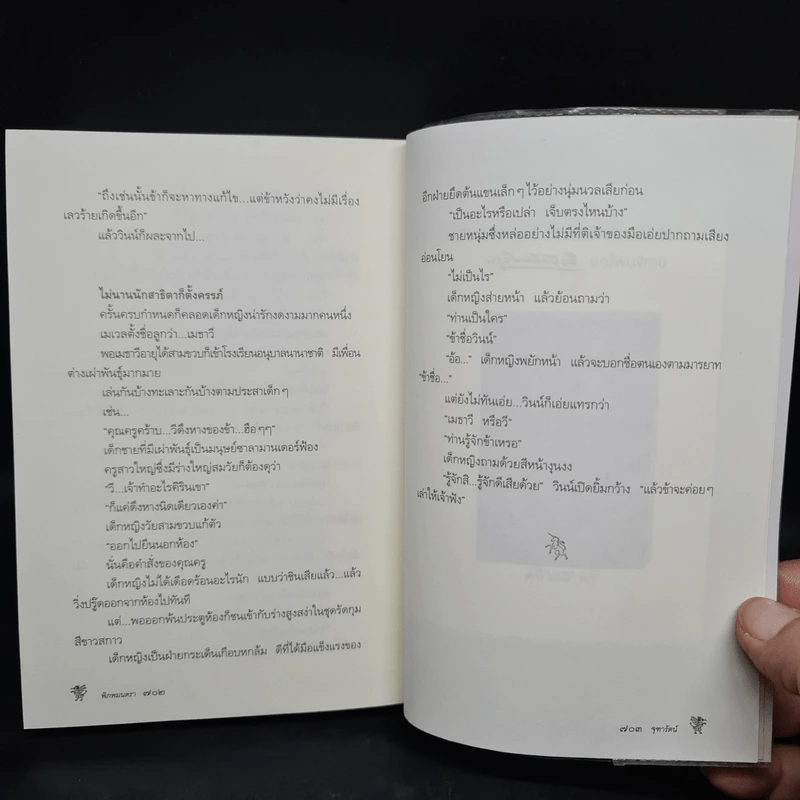 "ถึงเช่นนั้นข้าก็จะหาทางแก้ไข...แต่ข้าหวังว่าคงไม่มีเรื่อง
เลวร้ายเกิดขึ้นอีก"
แล้ววินน์ก็ผละจากไป...
ไม่นานนักสาธิตาก็ตั้งครรภ์
ครั้นครบกำหนดก็คลอดเด็กหญิงน่ารักงดงามมากคนหนึ่ง
เมเวลตั้งชื่อลูกว่า...เมธาวี
พอเมธาวีอายุได้สามขวบก็เข้าโรงเรียนอนุบาลนานาชาติ มีเพื่อน
ต่างเผ่าพันธุ์มากมาย
เล่นกันบ้างทะเลาะกันบ้างตามประสาเด็กๆ
เช่น...
"คุณครูคร้าบ...วีดึงหางของข้า...ฮือๆๆ"
เด็กชายที่มีเผ่าพันธุ์เป็นมนุษย์ซาลามานเดอร์ฟ้อง
ครูสาวใหญ่ซึ่งมีร่างใหญ่สมวัยก็ต้องดุว่า
"วี...เจ้าทำอะไรคิรินเขา"
"ก็แค่ดึงหางนิดเดียวเองค่า"
เด็กหญิงวัยสามขวบแก้ตัว
"ออกไปยืนนอกห้อง"
นั่นคือคำสั่งของคุณครู
เด็กหญิงไม่ได้เดือดร้อนอะไรนัก แบบว่าชินเสียแล้ว...แล้ว
วิ่งปรู๊ดออกจากห้องไปทันที
แต่...พอออกพ้นประตูห้องก็ชนเข้ากับร่างสูงสง่าในชุดรัดกุม
สีขาวสกาว
เด็กหญิงเป็นฝ่ายกระเด็นเกือบหกล้ม ดีที่ได้มือแข็งแรงของ
พิภพมนตรา ๗๐๒
อีกฝ่ายยึดต้นแขนเล็กๆ ไว้อย่างนุ่มนวลเสียก่อน
"เป็นอะไรหรือเปล่า เจ็บตรงไหนบ้าง"
ชายหนุ่มซึ่งหล่ออย่างไม่มีที่ติเจ้าของมือเอ่ยปากถามเสียง
อ่อนโยน
"ไม่เป็นไร"
เด็กหญิงส่ายหน้า แล้วย้อนถามว่า
"ท่านเป็นใคร"
"ข้าชื่อวินน์"
"อ้อ..." เด็กหญิงพยักหน้า แล้วจะบอกชื่อตนเองตามมารยาท
"ข้าชื่อ..."
แต่ยังไม่ทันเอ่ย...วินน์ก็เอ่ยแทรกว่า
"เมธาวี หรือวี"
"ท่านรู้จักข้าเหรอ"
เด็กหญิงถามด้วยสีหน้างุนงง
"รู้จักสิ...รู้จักดีเสียด้วย" วินน์เปิดยิ้มกว้าง "แล้วข้าจะค่อยๆ
เล่าให้เจ้าฟัง"
๗๐๓ จุฑารัตน์